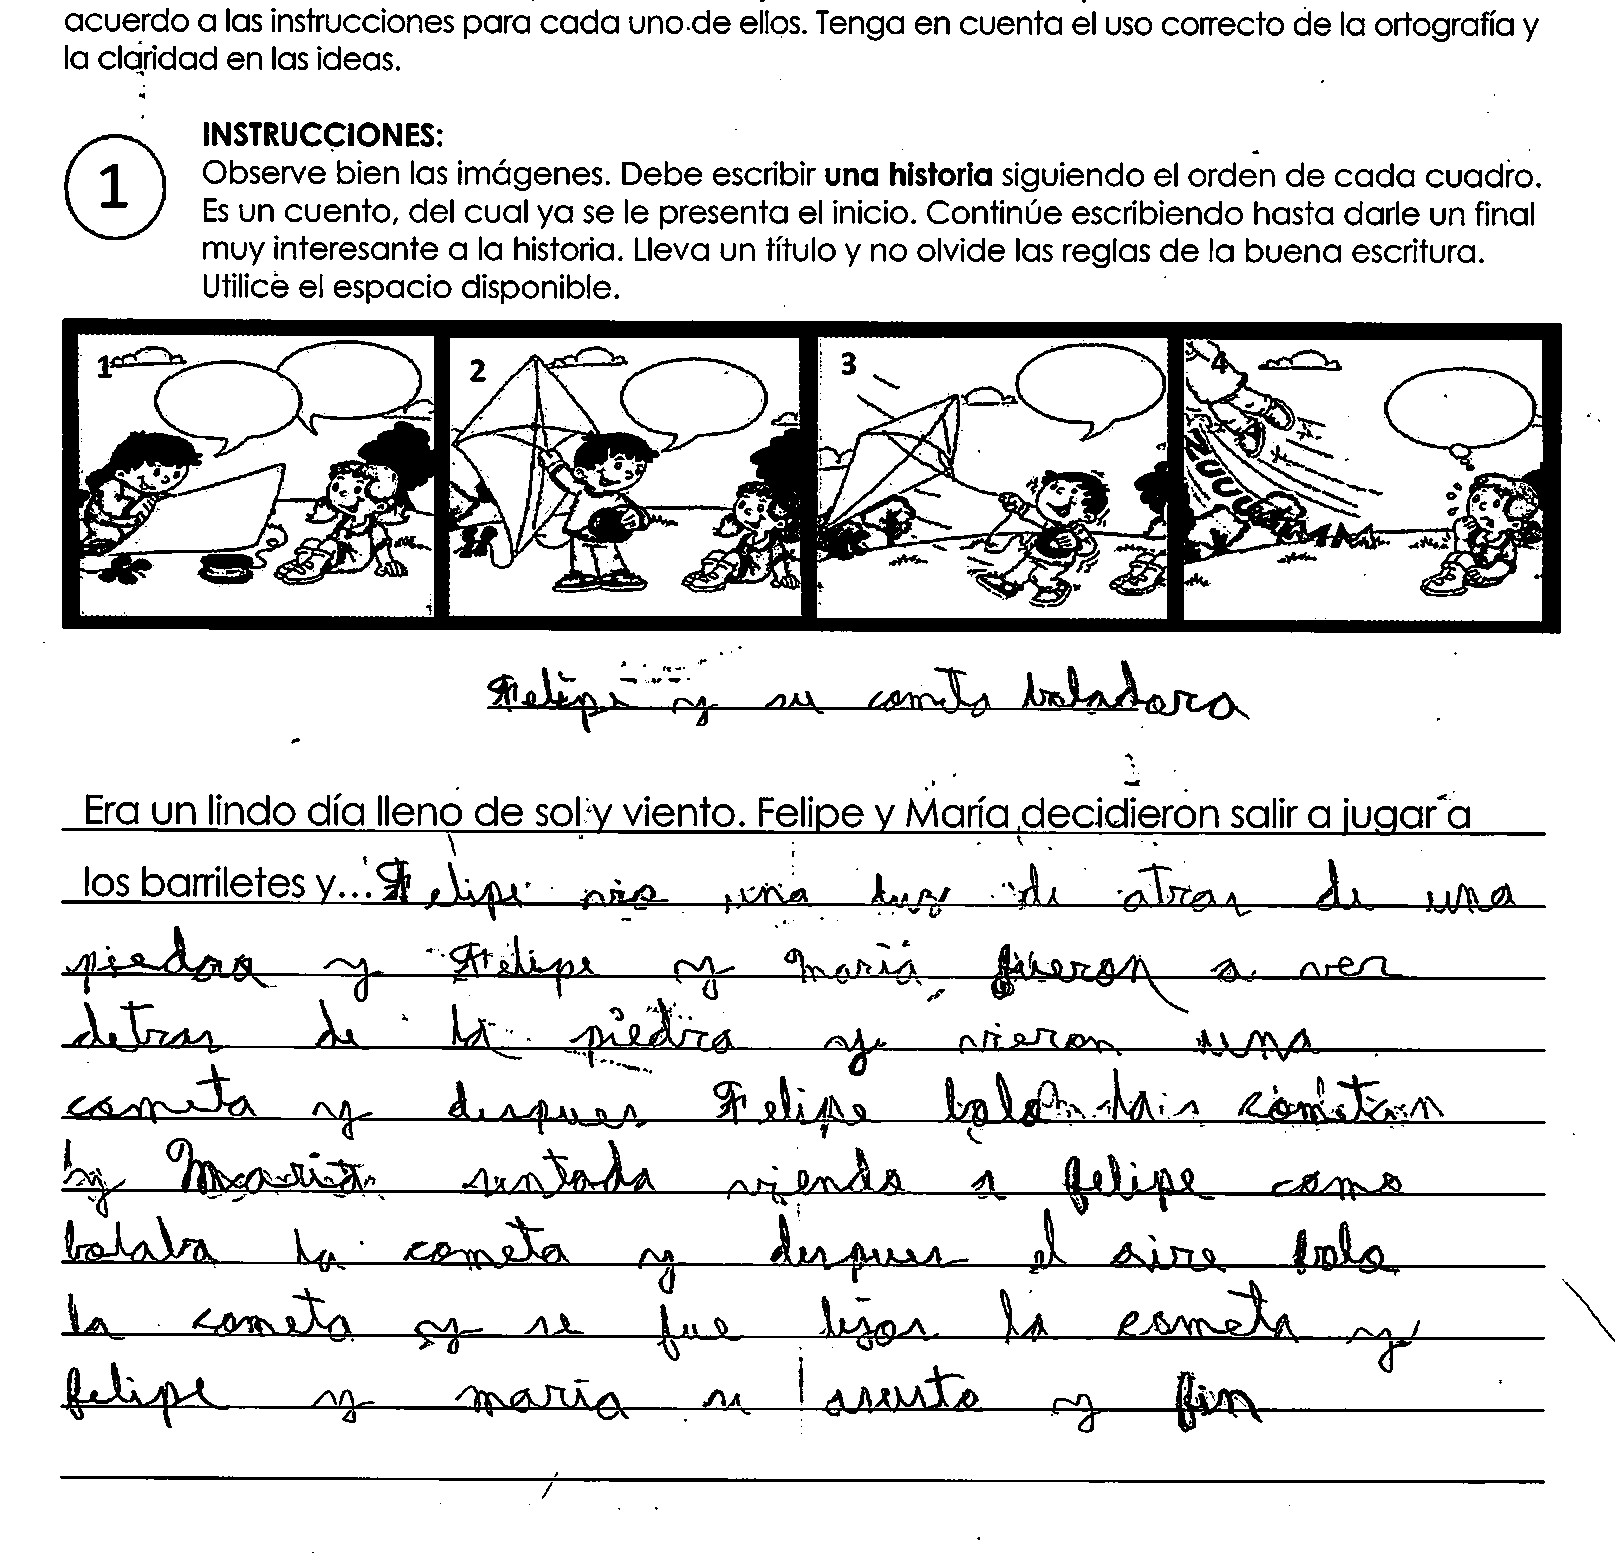 acuerdo a las instrucciones para cada uno de ellos. Tenga en cuenta el uso correcto de la ortografía y
la claridad en las ideas.
1
INSTRUCCIONES:
Observe bien las imágenes. Debe escribir una historia siguiendo el orden de cada cuadro.
Es un cuento, del cual ya se le presenta el inicio. Continúe escribiendo hasta darle un final
muy interesante a la historia. Lleva un título y no olvide las reglas de la buena escritura.
Utilice el espacio disponible.
1 2 3 4
ZUUUUMMM
Felipe y su cometa boladora
Era un lindo día lleno de sol y viento. Felipe y María decidieron salir a jugar a
los barriletes y... Felipe vio una luz de atras de una
piedra y Felipe y maría fueron a ver
detras de la piedra y vieron una
cometa y despues Felipe bolo la cometa
y Maria sentada viendo a felipe como
bolaba la cometa y despues el aire bolo
la cometa y se fue lejos la cometa y
felipe y maría se asusto y fin